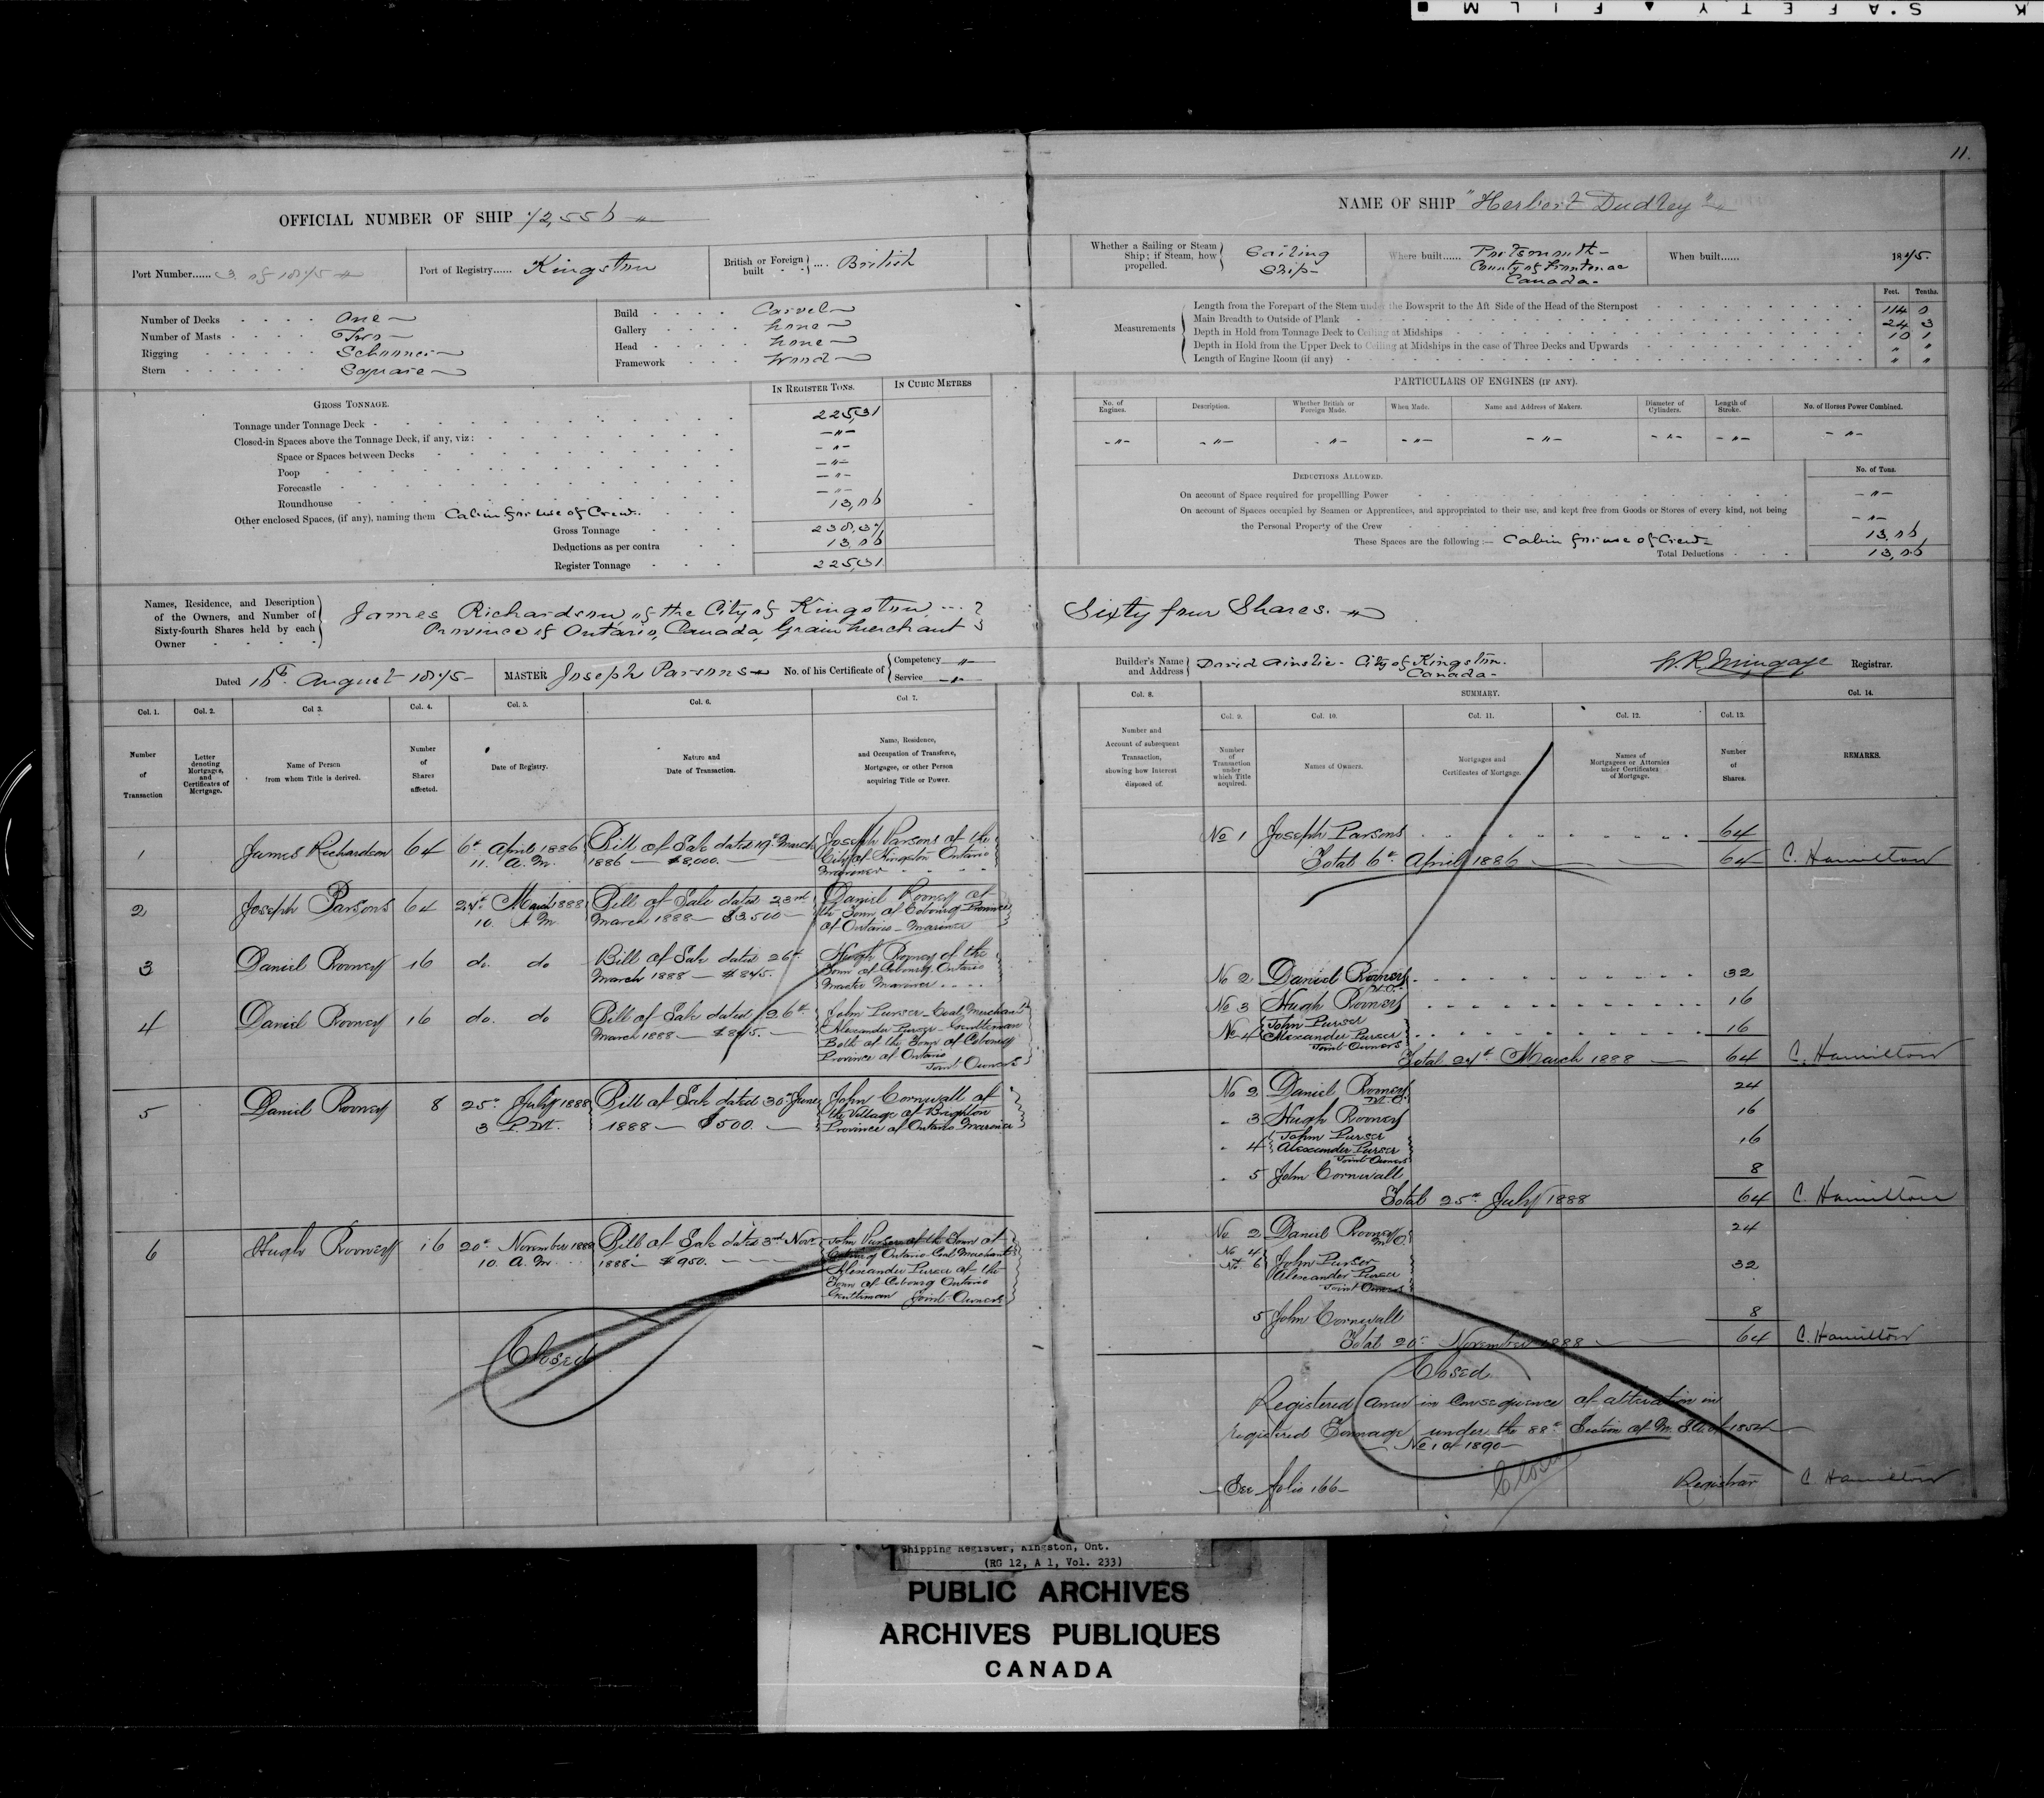 K S'AFETY ▲ FILM ■
11.
OFFICIAL NUMBER OF SHIP 72,556
NAME OF SHIP "Herbert Dudley"
Port Number...... 3 of 1875
Port of Registry...... Kingston
British or Foreign built .... British
Whether a Sailing or Steam Ship; if Steam, how propelled. Sailing Ship
Where built...... Portsmouth - County of Frontenac Canada -
When built...... 1875.
Number of Decks One
Number of Masts Two
Rigging Schooner
Stern Square
Build Carvel
Gallery none
Head none
Framework Wood
Measurements
Feet. Tenths.
Length from the Forepart of the Stem under the Bowsprit to the Aft Side of the Head of the Sternpost 114 0
Main Breadth to Outside of Plank 24 3
Depth in Hold from Tonnage Deck to Ceiling at Midships 10 1
Depth in Hold from the Upper Deck to Ceiling at Midships in the case of Three Decks and Upwards " "
Length of Engine Room (if any) " "
IN REGISTER TONS. IN CUBIC METRES
GROSS TONNAGE.
Tonnage under Tonnage Deck 225,31
Closed-in Spaces above the Tonnage Deck, if any, viz: -"-
Space or Spaces between Decks -"-
Poop -"-
Forecastle -"-
Roundhouse -"-
Other enclosed Spaces, (if any), naming them Cabin for use of Crew. 13,06
Gross Tonnage 238,37
Deductions as per contra 13,06
Register Tonnage 225,31
PARTICULARS OF ENGINES (IF ANY).
No. of Engines. Description. Whether British or Foreign Made. When Made. Name and Address of Makers. Diameter of Cylinders. Length of Stroke. No. of Horses Power Combined.
-"- -"- -"- -"- -"- -"- -"- -"-
DEDUCTIONS ALLOWED.
No. of Tons.
On account of Space required for propellling Power -"-
On account of Spaces occupied by Seamen or Apprentices, and appropriated to their use, and kept free from Goods or Stores of every kind, not being
the Personal Property of the Crew -"-
These Spaces are the following :— Cabin for use of Crew 13,06
Total Deductions 13,06
Names, Residence, and Description of the Owners, and Number of Sixty-fourth Shares held by each Owner
James Richardson, of the City of Kingston
Province of Ontario, Canada, Grain Merchant
Sixty four Shares.
Dated 16th August 1875
MASTER Joseph Parsons
No. of his Certificate of Competency " Service "
Builder's Name and Address David Ainslie - City of Kingston. Canada -
W. R. Mingaye Registrar.
Col. 1. Col. 2. Col 3. Col. 4. Col. 5. Col. 6. Col 7.
Number of Transaction
Letter denoting Mortgages, and Certificates of Mortgage.
Name of Person from whom Title is derived.
Number of Shares affected.
Date of Registry.
Nature and Date of Transaction.
Name, Residence, and Occupation of Transferee, Mortgagee, or other Person acquiring Title or Power.
1 James Richardson 64 6th April 1886 11. A.M. Bill of Sale dated 19th March 1886 — $8,000. — Joseph Parsons of the City of Kingston Ontario Mariner
2 Joseph Parsons 64 27th March 1888 10. A M Bill of Sale dated 23rd March 1888 — $3500 — Daniel Rooney of the Town of Cobourg Province of Ontario - Mariner
3 Daniel Rooney 16 do. do Bill of Sale dated 26th March 1888 — $875. Hugh Rooney of the Town of Cobourg Ontario Master Mariner
4 Daniel Rooney 16 do. do Bill of Sale dated 26th March 1888 — $875. — John Purser - Coal Merchant Alexander Purser - Gentleman Both of the Town of Cobourg Province of Ontario Joint Owners
5 Daniel Rooney 8 25th July 1888 3 P.M. Bill of Sale dated 30th June 1888 — $500. — John Cornwall of the Village of Brighton Province of Ontario Mariner
6 Hugh Rooney 16 20th November 1888 10. A.M. Bill of Sale dated 3rd Novr 1888 — $950. John Purser of the Town of Cobourg Ontario Coal Merchant Alexander Purser of the Town of Cobourg Ontario Gentleman Joint Owners
Closed
Col. 8. SUMMARY. Col. 14.
Col. 9. Col. 10. Col. 11. Col. 12. Col. 13.
Number and Account of subsequent Transaction, showing how Interest disposed of.
Number of Transaction under which Title acquired.
Names of Owners.
Mortgages and Certificates of Mortgage.
Names of Mortgagees or Attornies under Certificates of Mortgage.
Number of Shares.
REMARKS.
No 1 Joseph Parsons 64
Total 6th April 1886 64 C. Hamilton
No 2 Daniel Rooney M.O. 32
No 3 Hugh Rooney 16
No 4 John Purser Alexander Purser Joint Owners 16
Total 27th March 1888 64 C. Hamilton
No 2 Daniel Rooney M.O. 24
" 3 Hugh Rooney 16
" 4 John Purser Alexander Purser Joint Owners 16
" 5 John Cornwall 8
Total 25th July 1888 64 C. Hamilton
No. 2 Daniel Rooney M.O. 24
No 4 No. 6 John Purser Alexander Purser Joint Owners 32
5 John Cornwall 8
Total 20th November 1888 64 C. Hamilton
Closed
Registered Anew in Consequence of alteration in
registered Tonnage under the 88th Section of M. S. A. of 1854
No 1 of 1890
See folio 166
Closed
Registrar C. Hamilton
Shipping Register, Kingston, Ont.
(RG 12, A 1, Vol. 233)
PUBLIC ARCHIVES
ARCHIVES PUBLIQUES
CANADA